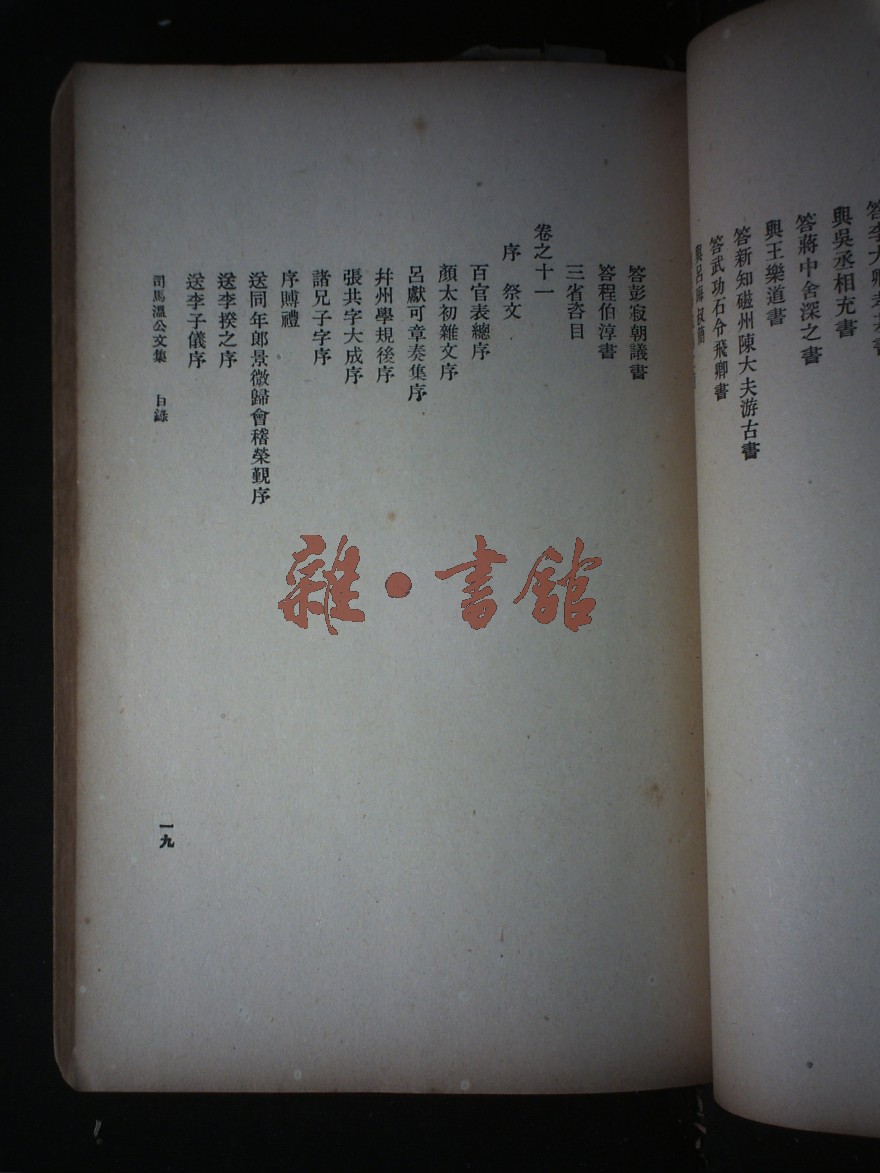 與吳丞相充書
答蔣中舍深之書
與王樂道書
答新知磁州陳大夫游古書
答武功石令飛卿書
答彭寂朝議書
答程伯淳書
三省咨目
卷之十一
序 祭文
百官表總序
顏太初雜文序
呂獻可章奏集序
幷州學規後序
張共字大成序
諸兄子字序
序賻禮
送同年郎景微歸會稽榮覲序
送李揆之序
送李子儀序
司馬溫公文集 目錄
一九
雜·書館